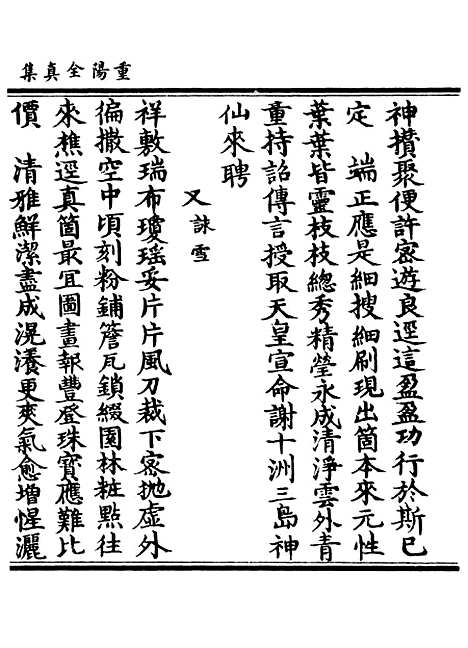 重陽全真集
神攅聚便許宻遊良逕這盈盈功行於斯已
定　端正應是細搜細刷現出箇本來元性
葉葉皆靈枝枝總秀精瑩永成清淨雲外青
童持詔傳言授取天皇宣命謝十洲三島神
仙來聘
又詠雪
祥敷瑞布瓊瑶妥片片風刀裁下宻抛虚外
徧撒空中頃刻粉鋪簷瓦鎖綴園林粧點往
來樵逕真箇最冝圖畫報豐登珠寳應難比
價　清雅鮮潔盡成滉瀁更爽氣愈増惺灑